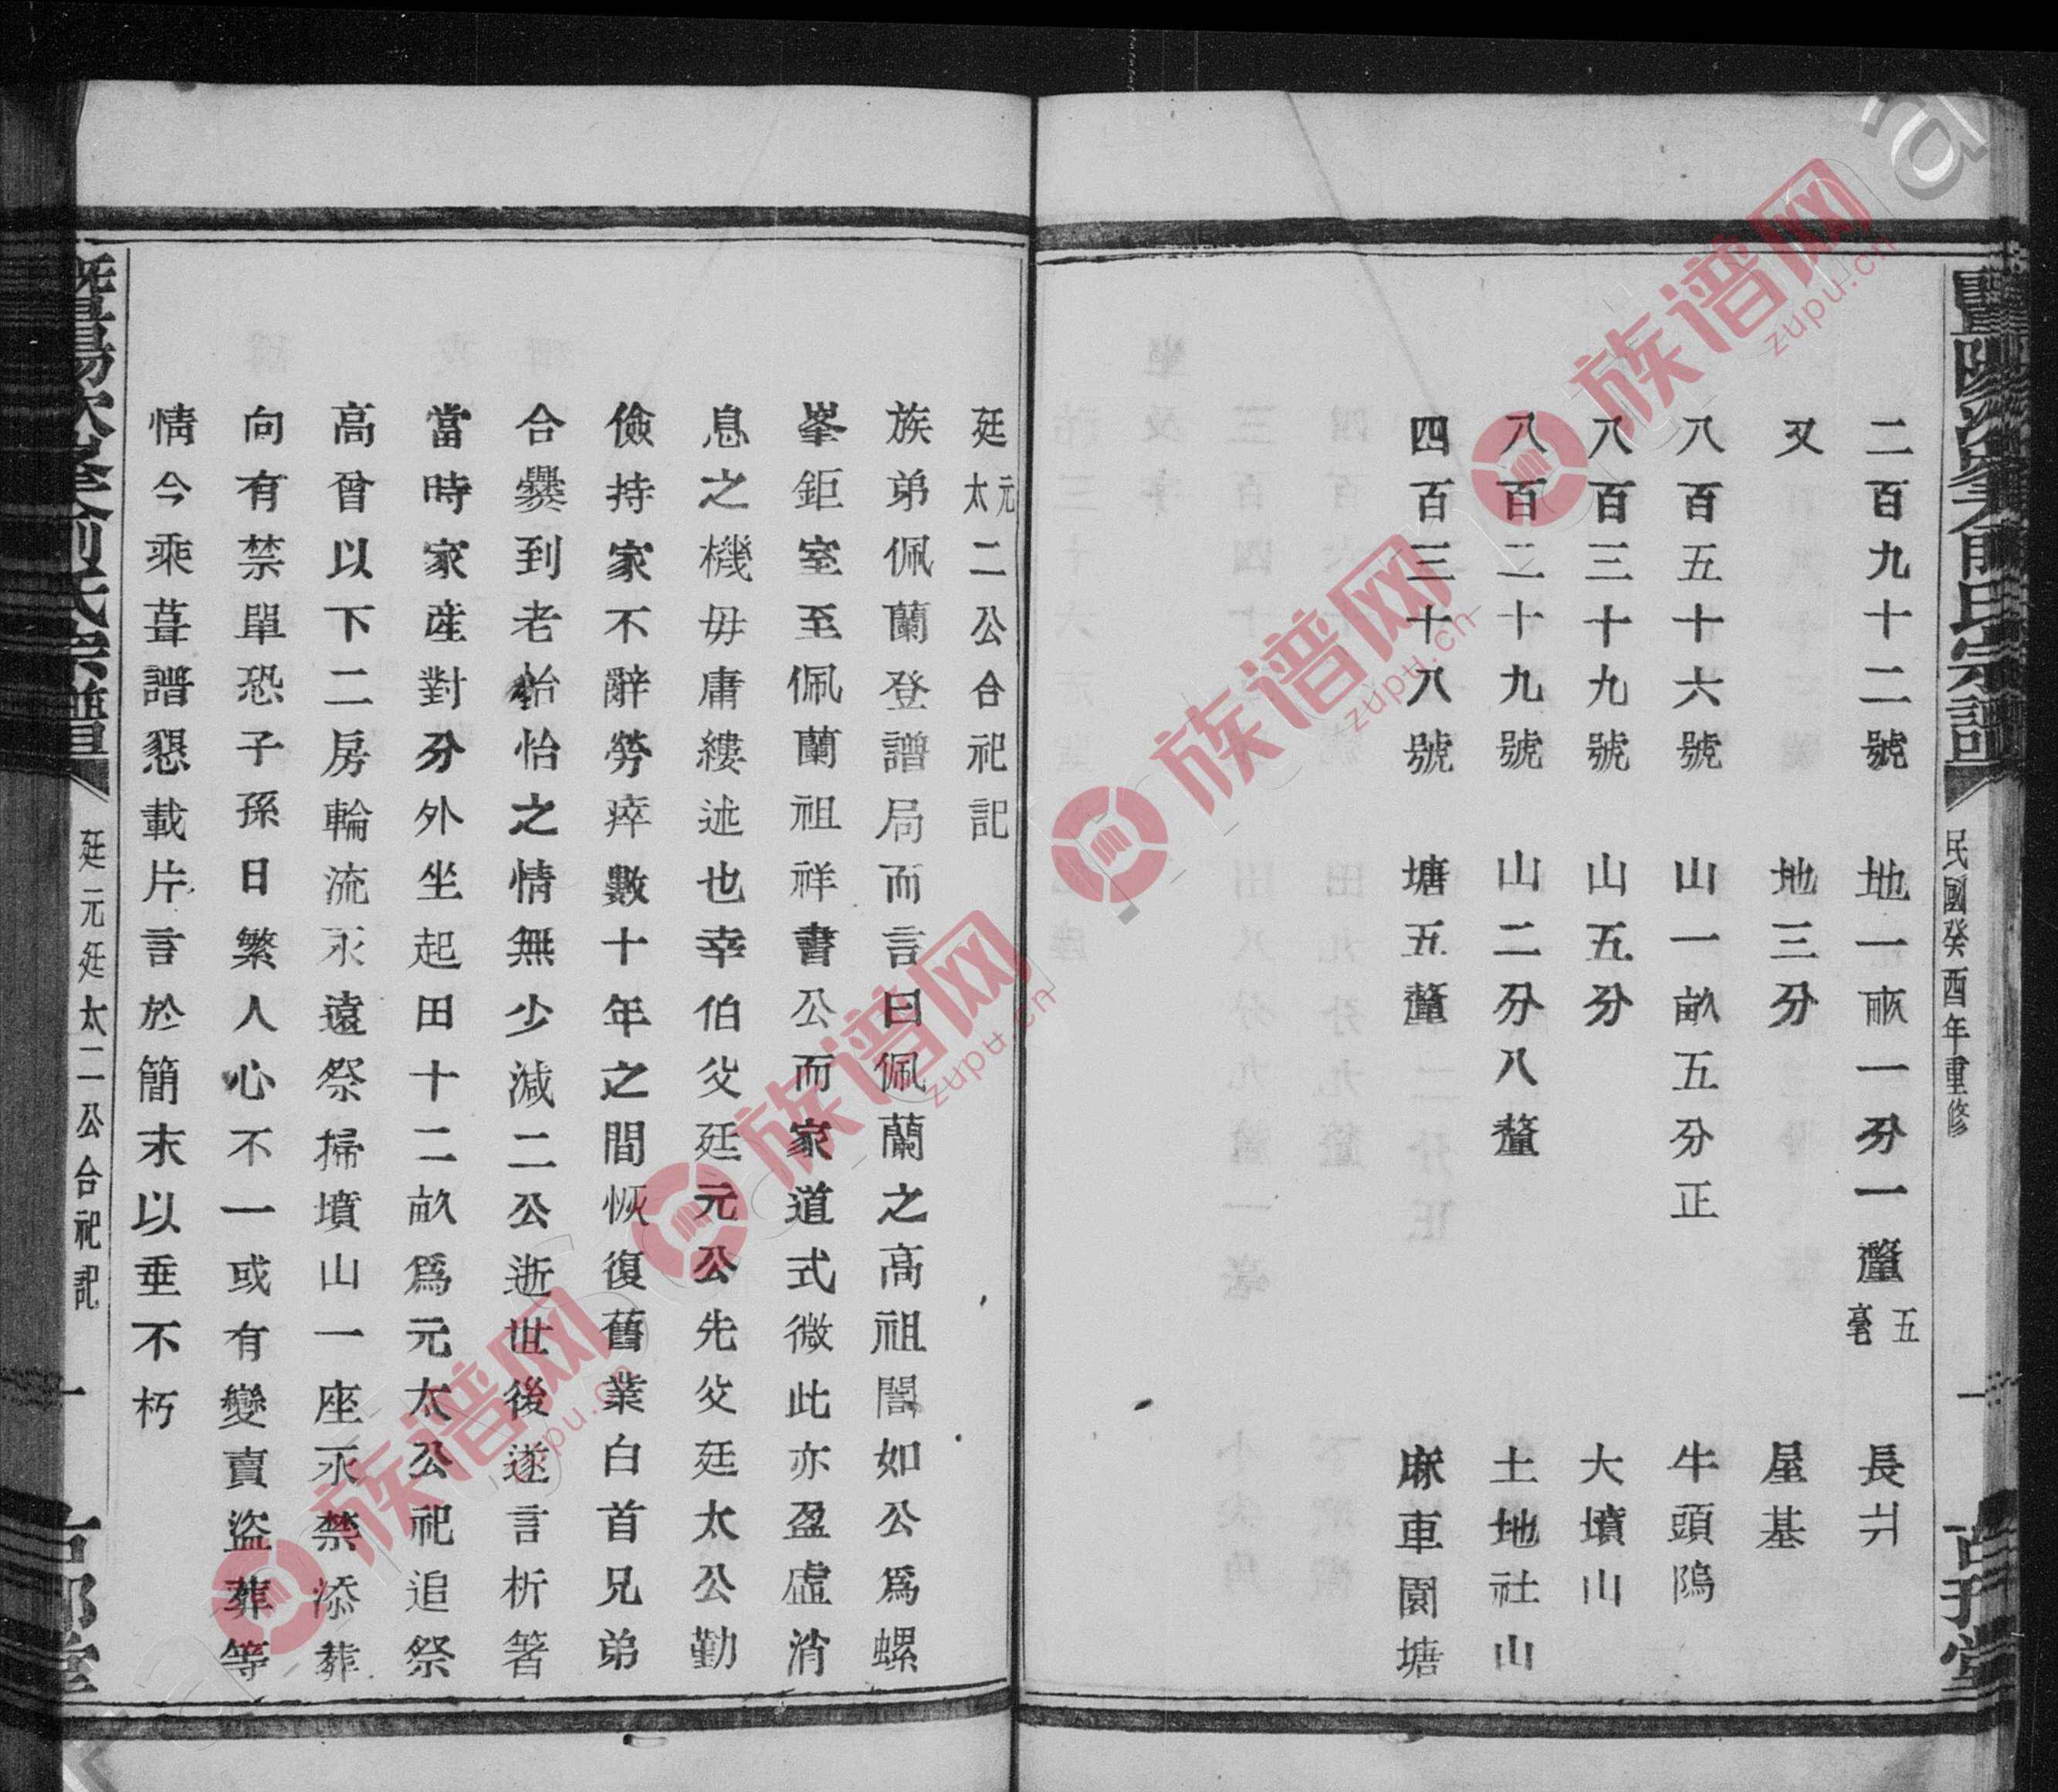 民國癸酉年重修
一
二百九十二號 地一畝一分一釐五毫 長丼
又 地三分 屋基
八百五十六號 山一畝五分正 牛頭隖
八百三十九號 山五分 大墳山
八百二十九號 山二分八釐 土地社山
四百三十八號 塘五釐 麻車園塘
廷元太二公合祀記
族弟佩蘭登譜局而言曰佩蘭之高祖誾如公爲螺
峯鉅室至佩蘭祖祥書公而家道式微此亦盈虛消
息之機毋庸縷述也幸伯父廷元公先父廷太公勤
儉持家不辭勞瘁數十年之間恢復舊業白首兄弟
合爨到老怡怡之情無少減二公逝世後遂言析箸
當時家産對分外坐起田十二畝爲元太公祀追祭
高曾以下二房輪流永遠祭掃墳山一座永禁添葬
向有禁單恐子孫日繁人心不一或有變賣盜葬等
情今乘葺譜懇載片言於簡末以垂不朽
廷元廷太二公合祀記
一
族谱网
zupu.cn
族谱网
zupu.cn
族谱网
zupu.cn
族谱网
zupu.cn